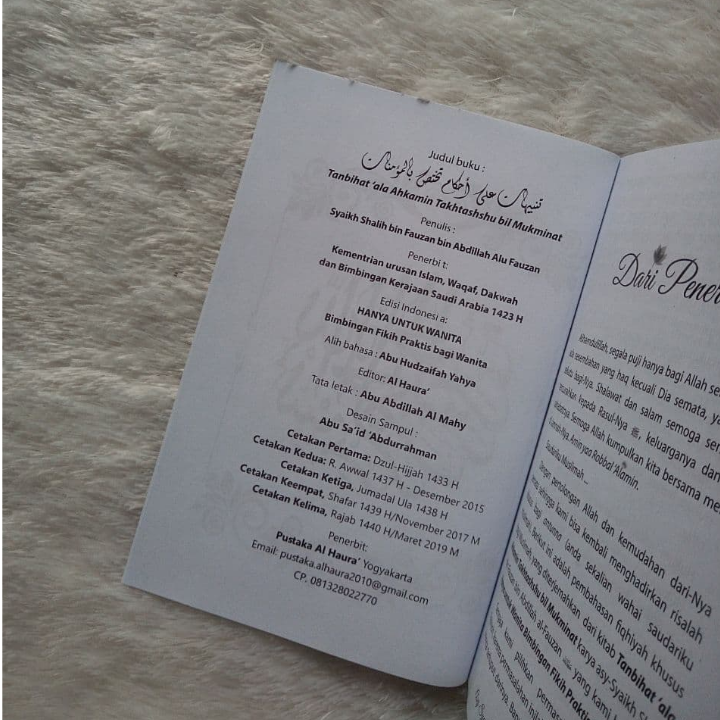 Judul buku :
تنبيهات على أحكام تختص بالمؤمنات
Tanbihat 'ala Ahkamin Takhtashshu bil Mukminat
Penulis :
Syaikh Shalih bin Fauzan bin Abdillah Alu Fauzan
Penerbi t:
Kementrian urusan Islam, Waqaf, Dakwah
dan Bimbingan Kerajaan Saudi Arabia 1423 H
Edisi indonesi a:
HANYA UNTUK WANITA
Bimbingan Fikih Praktis bagi Wanita
Alih bahasa : Abu Hudzaifah Yahya
Editor: Al Haura'
Tata letak : Abu Abdillah Al Mahy
Desain Sampul :
Abu Sa'id 'Abdurrahman
Cetakan Pertama: Dzul-Hijjah 1433 H
Cetakan Kedua: R. Awwal 1437 H - Desember 2015
Cetakan Ketiga, Jumadal Ula 1438 H
Cetakan Keempat, Shafar 1439 H/November 2017 M
Cetakan Kelima, Rajab 1440 H/Maret 2019 M
Penerbit:
Pustaka Al Haura' Yogyakarta
Email: pustaka.alhaura2010@gmail.com
CP. 081328022770
Dari Pener
Alhamdulillah, segala puji hanya bagi Allah
sesembahan yang haq kecuali Dia semata,
bagi-Nya. Shalawat dan salam semoga
kepada Rasul-Nya ﷺ, keluarganya dan
Semoga Allah kumpulkan kita bersama
Amin yaa Robbal 'Alamin.
Saudariku Muslimah..
Dengan pertolongan Allah dan kemudahan dari-Nya
sehingga kami bisa kembali menghadirkan risalah
bagi anda sekalian wahai saudariku
Berikut ini adalah pembahasan fiqhiyah khusus
yang diterjemahkan dari kitab Tanbihat 'ala
bil Mukminat karya asy-Syaikh
al-Fauzan yang kami
Wanita Bimbingan Fikih Prakti
kami pilihkan